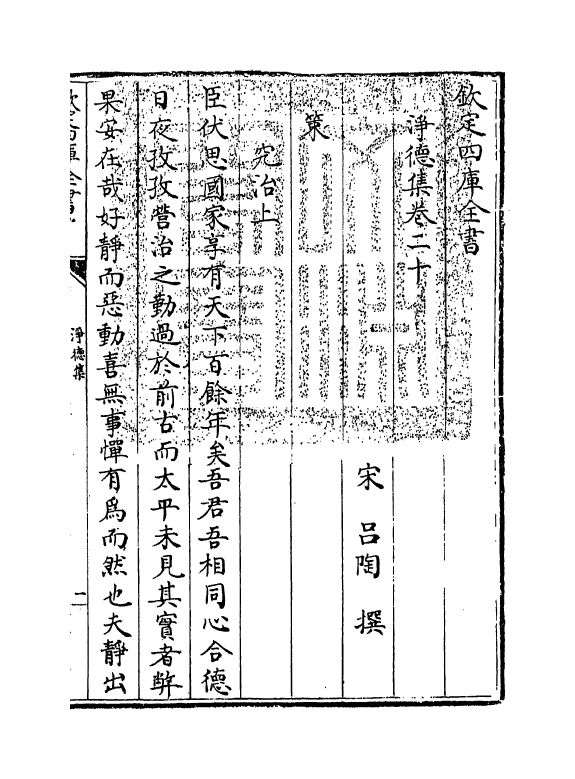 欽定四庫全書
淨德集卷二十
宋 吕陶 撰
策
究治上
臣伏思國家享有天下百餘年矣吾君吾相同心合德
日夜孜孜營治之勤過於前古而太平未見其實者弊
果安在哉好靜而惡動喜無事憚有爲而然也夫靜出
淨德集
二